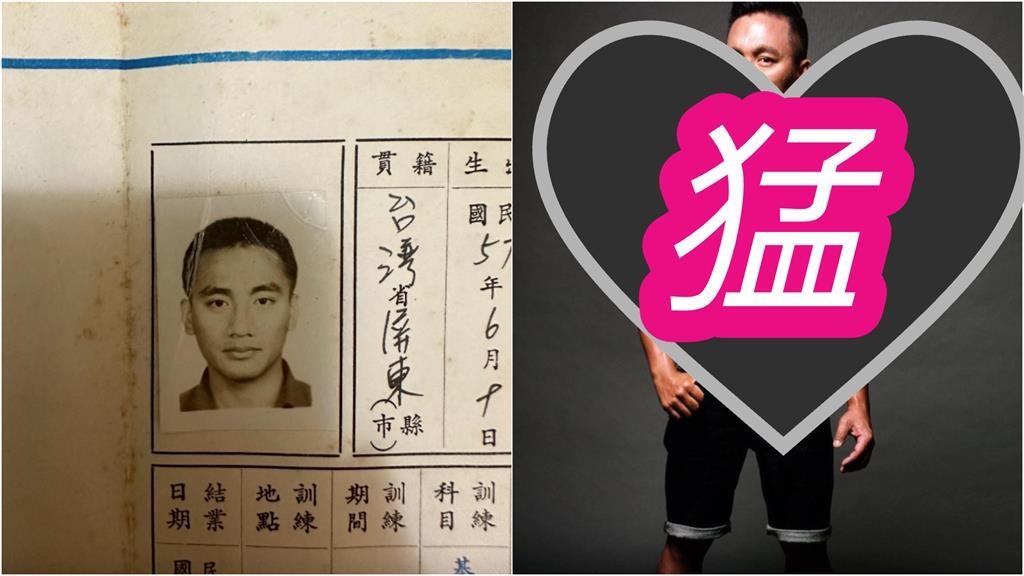 籍貫
台灣省屏東縣(市)
生
民國57年6月十日
訓練科目
訓練期間
訓練地點
結業日期
基
民國
猛